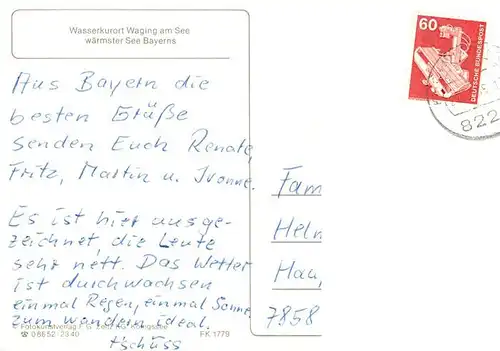 Wasserkurort Waging am See
wärmster See Bayerns
Aus Bayern die
besten Grüße
senden Euch Renate,
Fritz, Martin u. Ivonne.
Es ist hier ausge-
zeichnet, die Leute
sehr nett. Das Wetter
ist durchwachsen
einmal Regen, einmal Sonne
zum wandern ideal.
tschüss
Fotokunstverlag F. G. Zeitz KG, Königssee
☎ 0 86 52 - 23 40
FK 1779
60
DEUTSCHE BUNDESPOST
822
Fam
Helm
Hau
7858